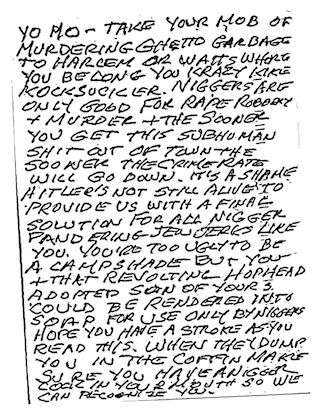 YO MO - TAKE YOUR MOB OF
MURDERING GHETTO GARBAGE
TO HARLEM OR WATTS WHERE
YOU BELONG YOU KRAZY KIKE
KOCKSUCKER. NIGGERS ARE
ONLY GOOD FOR RAPE ROBBERY
+ MURDER + THE SOONER
YOU GET THIS SUBHUMAN
SHIT OUT OF TOWN THE
SOONER THE CRIME RATE
WILL GO DOWN. IT'S A SHAME
HITLER'S NOT STILL ALIVE TO
PROVIDE US WITH A FINAL
SOLUTION FOR ALL NIGGER
PANDERING JEW JERKS LIKE
YOU. YOU'RE TOO UGLY TO BE
A LAMPSHADE BUT YOU
+ THAT REVOLTING HOPHEAD
ADOPTED SON OF YOURS
COULD BE RENDERED INTO
SOAP FOR USE ONLY BY NIGGERS
HOPE YOU HAVE A STROKE AS YOU
READ THIS. WHEN THEY DUMP
YOU IN THE COFFIN MAKE
SURE YOU HAVE A NIGGER
COCK IN YOUR MOUTH SO WE
CAN RECOGNIZE YOU.